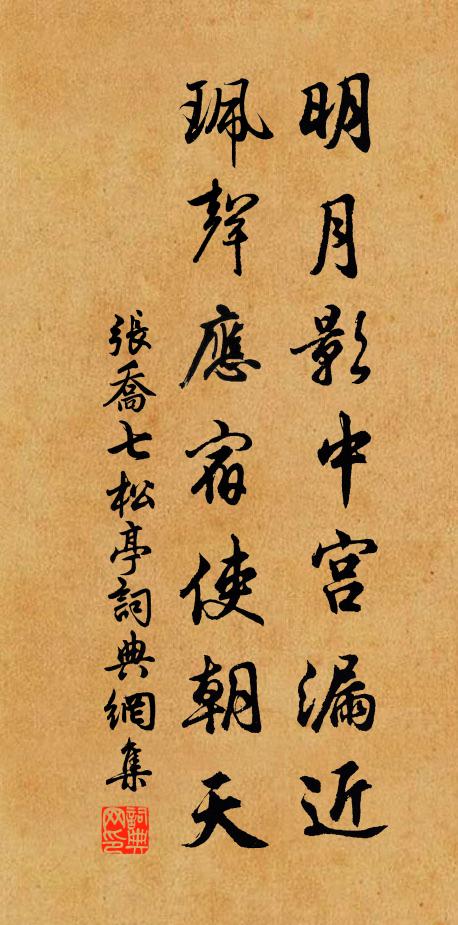 明月影中宮漏近
珮聲應宿使朝天
張喬七松亭詞典網集
詞典網印